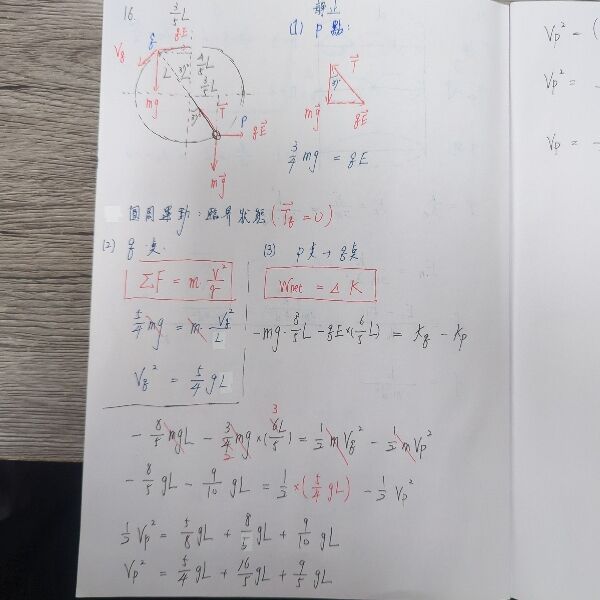 16.
3/5 L
qE
Vq
q
mg
L
37°
4/5 L
3/5 L
37°
T⃗
P
qE⃗
mg⃗
靜止
(1) P 點:
37°
T⃗
mg⃗
qE⃗
3/4 mg = qE
圓周運動:臨界狀態 (T⃗q = 0)
(2) q 點:
ΣF = m · v²/r
5/4 mg = m · Vq²/L
Vq² = 5/4 gL
(3) P點 → q點
Wnet = Δ K
-mg · 8/5 L - qE × (6/5 L) = Kq - Kp
- 8/5 mgL - 3/4 mg × (6L/5) = 1/2 m Vq² - 1/2 m Vp²
- 8/5 gL - 9/10 gL = 1/2 × (5/4 gL) - 1/2 Vp²
1/2 Vp² = 5/8 gL + 8/5 gL + 9/10 gL
Vp² = 5/4 gL + 16/5 gL + 9/5 gL
Vp² = (
Vp² =
Vp =